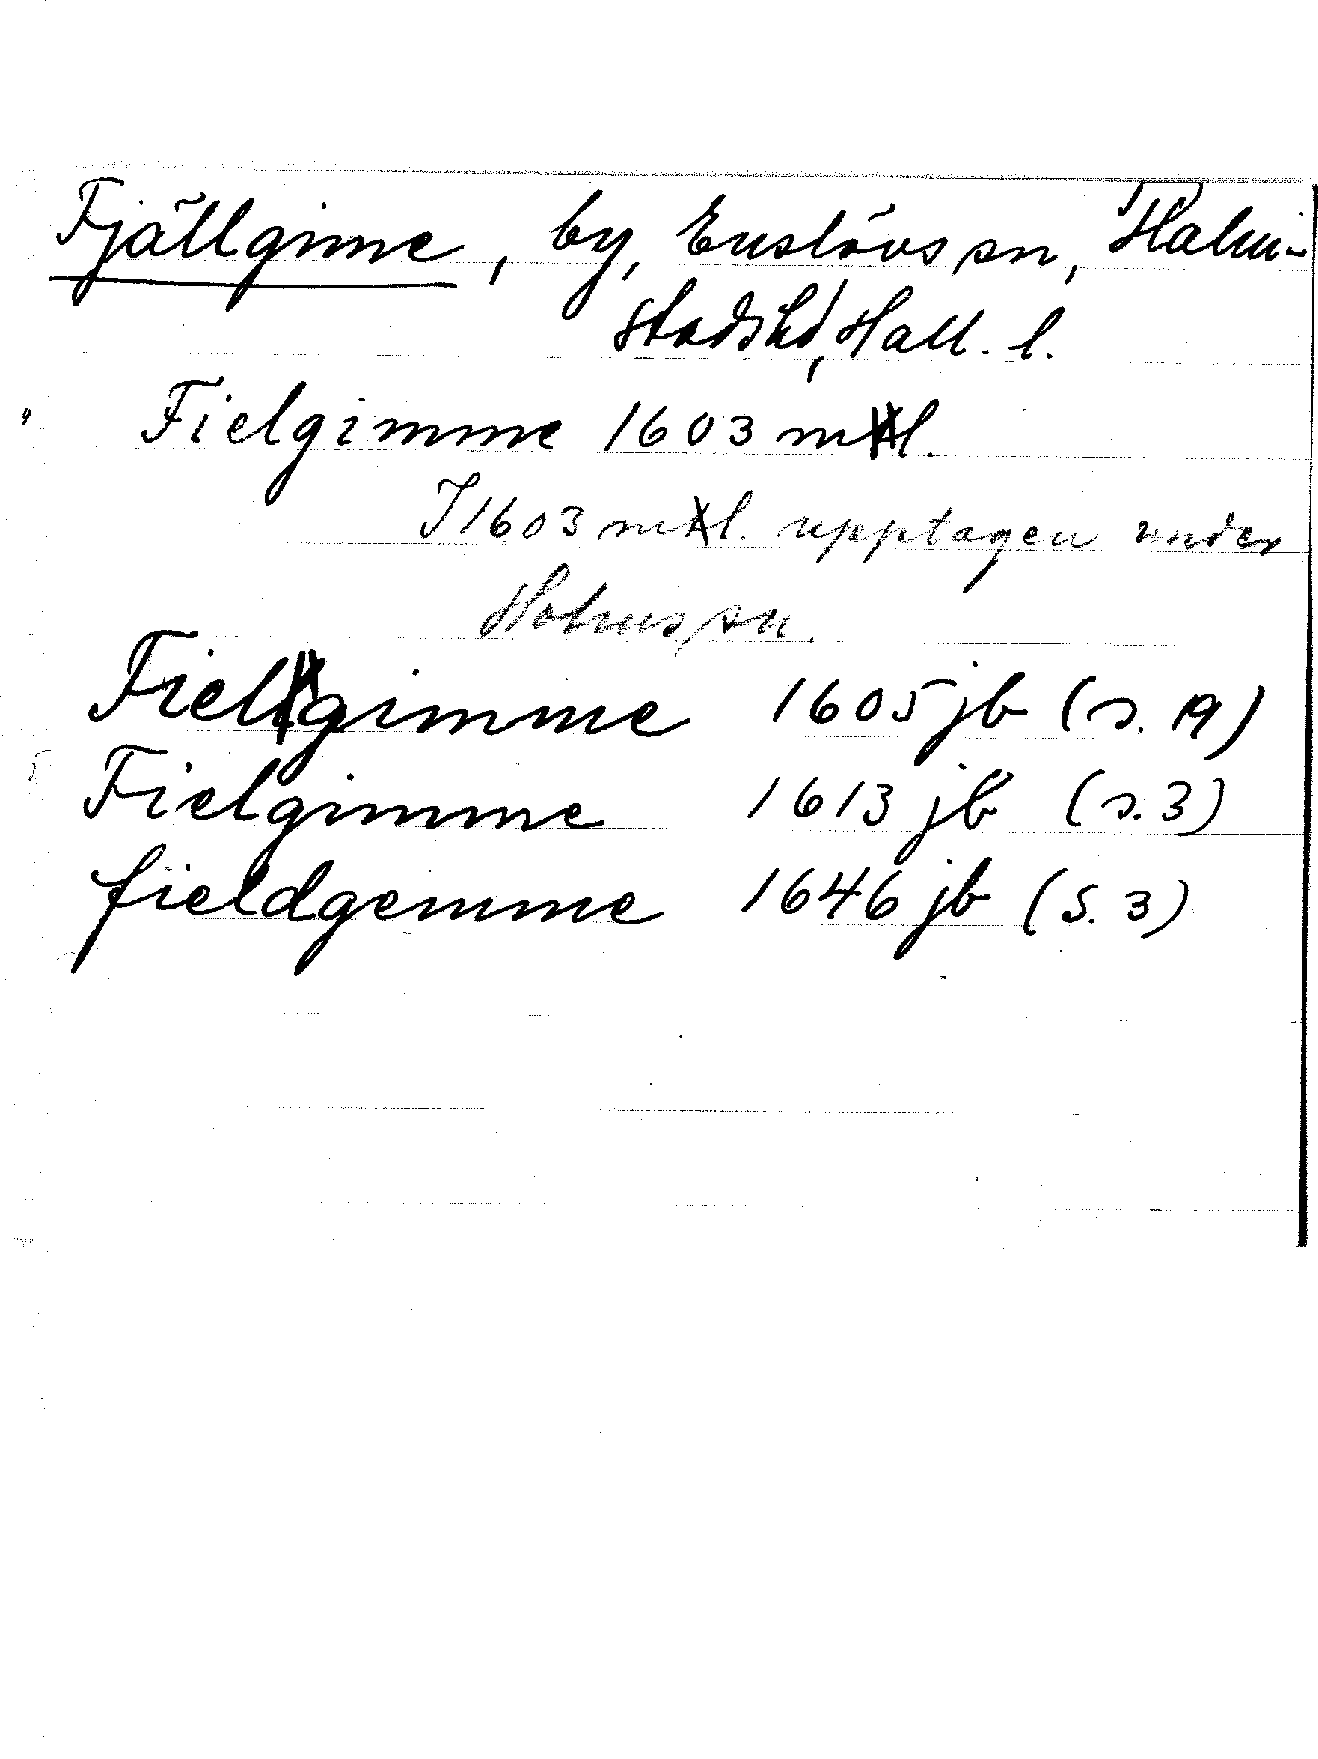 Fjällgime, by, Enslövs sn, Halm-
stads hd, Hall. l.
Fielgimme 1603 mtl.
I 1603 mtl. upptagen under
Holms sn.
Fielgimme 1605 jb (s. 19)
Fielgimme 1613 jb (s. 3)
fieldgemme 1646 jb (s. 3)